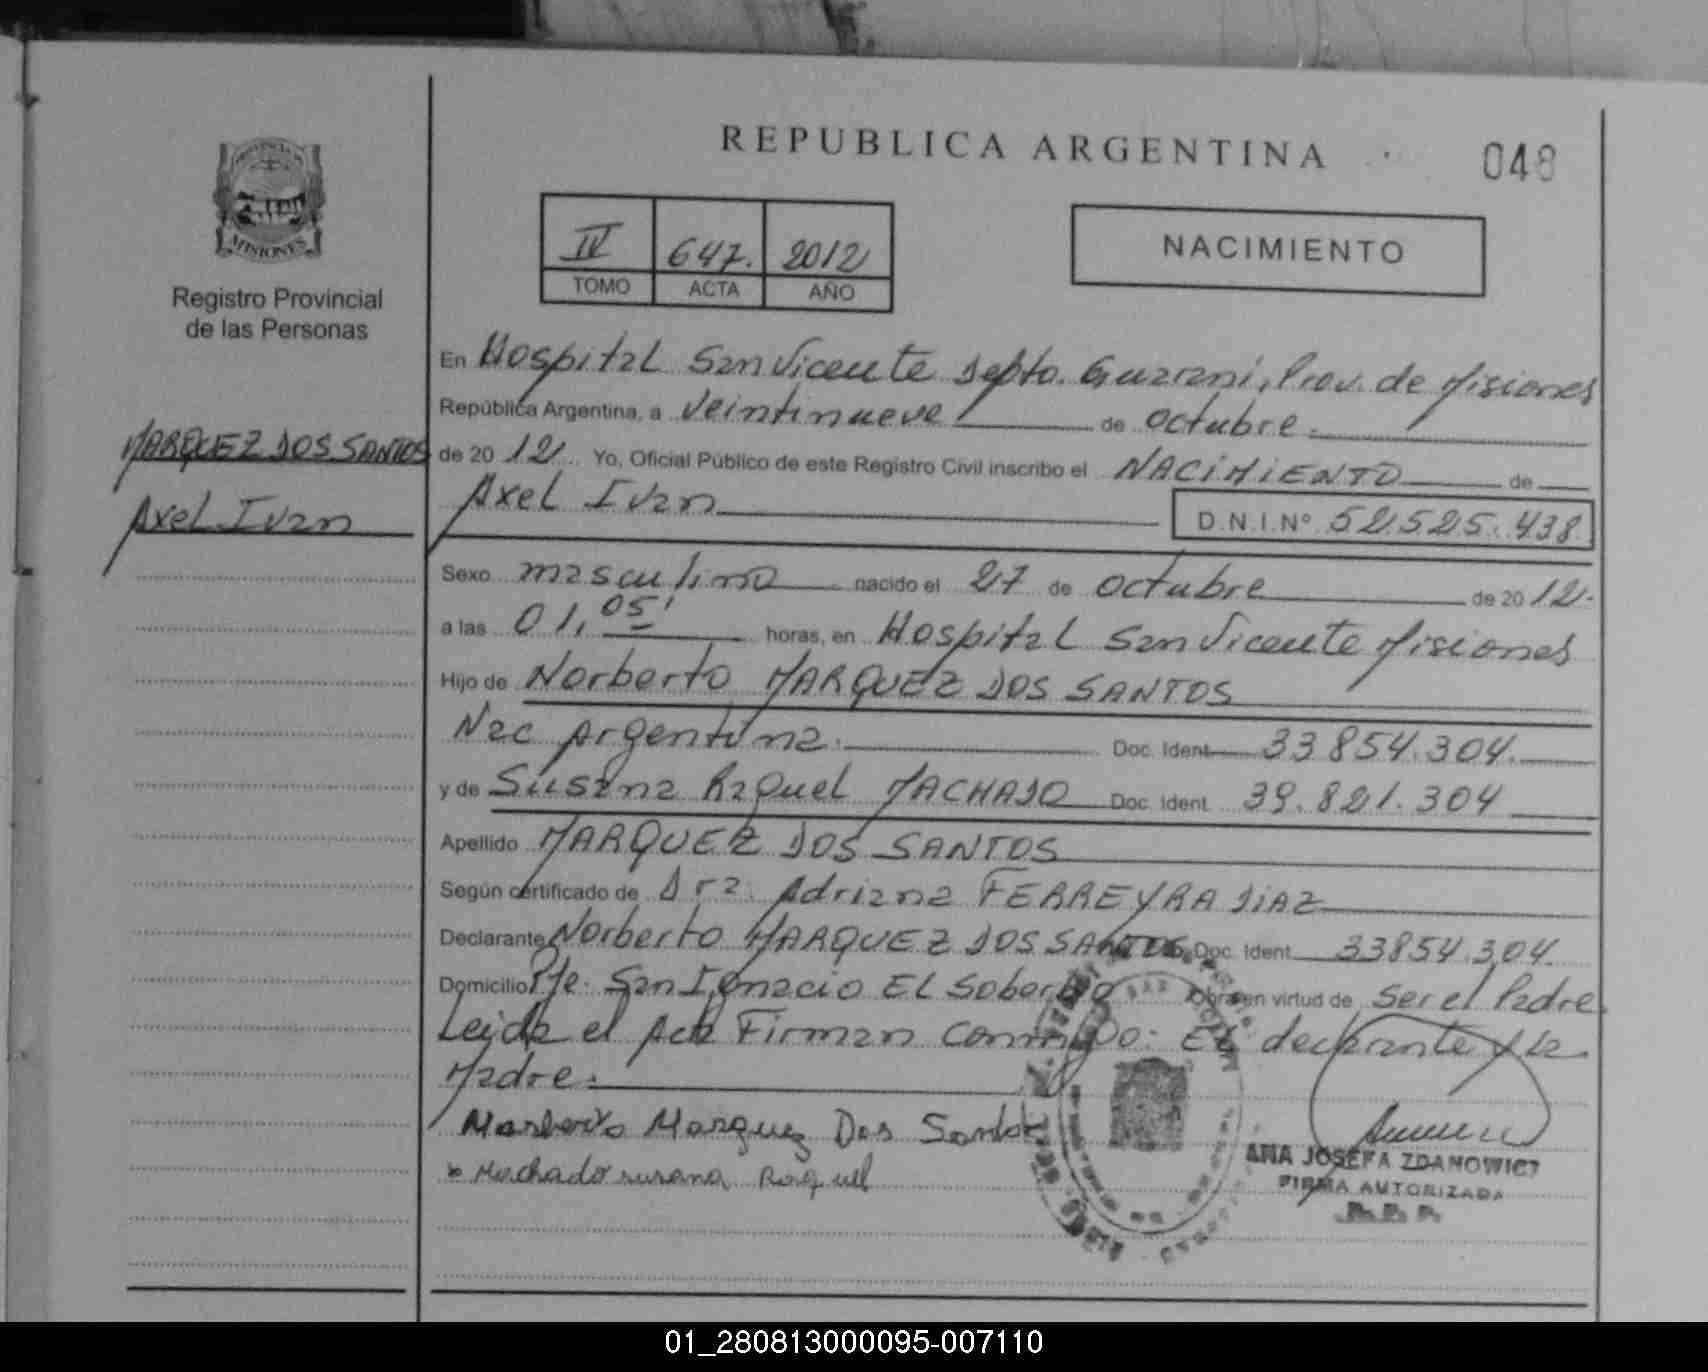 REPUBLICA ARGENTINA
048
PROVINCIA DE
MISIONES
Registro Provincial
de las Personas
IV 647. 2012
TOMO ACTA AÑO
NACIMIENTO
MARQUEZ DOS SANTOS
Axel Ivan
En Hospital San Vicente Depto. Guarani, Prov. de Misiones
República Argentina, a veintinueve de octubre.
de 20 12 Yo, Oficial Público de este Registro Civil inscribo el NACIMIENTO de
Axel Ivan D.N.I.Nº 52.525.438
Sexo masculino nacido el 27 de octubre de 20 12.
a las 01,05' horas, en Hospital San Vicente Misiones
Hijo de Norberto MARQUEZ DOS SANTOS
Nac Argentina. Doc. Ident 33854.304.
y de Susana Raquel MACHADO Doc. Ident. 39.821.304
Apellido MARQUEZ DOS SANTOS
Según certificado de Dra. Adriana FERREYRA DIAZ
Declarante Norberto MARQUEZ DOS SANTOS Doc. Ident. 33854.304.
Domicilio Pje. San Ignacio El Soberbio Obra en virtud de ser el Padre.
Leida el Acta Firman conmigo: El declarante y la
Madre.
Norberto Marquez Dos Santos
Machado susana Raquel
ANA JOSEFA ZDANOWICZ
FIRMA AUTORIZADA
01_280813000095-007110